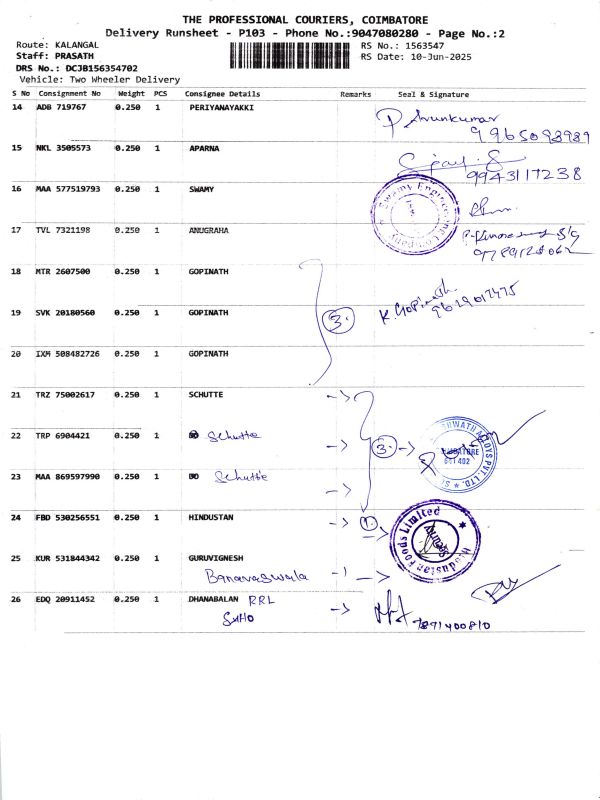 THE PROFESSIONAL COURIERS, COIMBATORE
Delivery Runsheet - P103 - Phone No.:9047080280 - Page No.:2
Route: KALANGAL RS No.: 1563547
Staff: PRASATH RS Date: 10-Jun-2025
DRS No.: DCJB156354702
Vehicle: Two Wheeler Delivery
S No Consignment No Weight PCS Consignee Details Remarks Seal & Signature
14 ADB 719767 0.250 1 PERIYANAYAKKI
9965093989
15 NKL 3505573 0.250 1 APARNA
9943117238
16 MAA 577519793 0.250 1 SWAMY
Swamy Engineering Company
17 TVL 7321198 0.250 1 ANUGRAHA
18 MTR 2607500 0.250 1 GOPINATH
19 SVK 20180560 0.250 1 GOPINATH 3. K. Gopinath.
20 IXM 508482726 0.250 1 GOPINATH
21 TRZ 75002617 0.250 1 SCHUTTE
22 TRP 6904421 0.250 1 Schutte 3.
23 MAA 869597990 0.250 1 Schutte
24 FBD 530256551 0.250 1 HINDUSTAN 1.
Hindustan Foods Limited
25 KUR 531844342 0.250 1 GURUVIGNESH
Banaraswala
26 EDQ 20911452 0.250 1 DHANABALAN RRL
7891400810